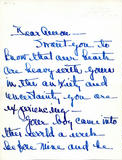 Dear Anon—
I want you to
know that our hearts
are heavy with yours
in the anxiety and
uncertainty you are
experiencing—
Your boy came into
this world a week
before mine and he